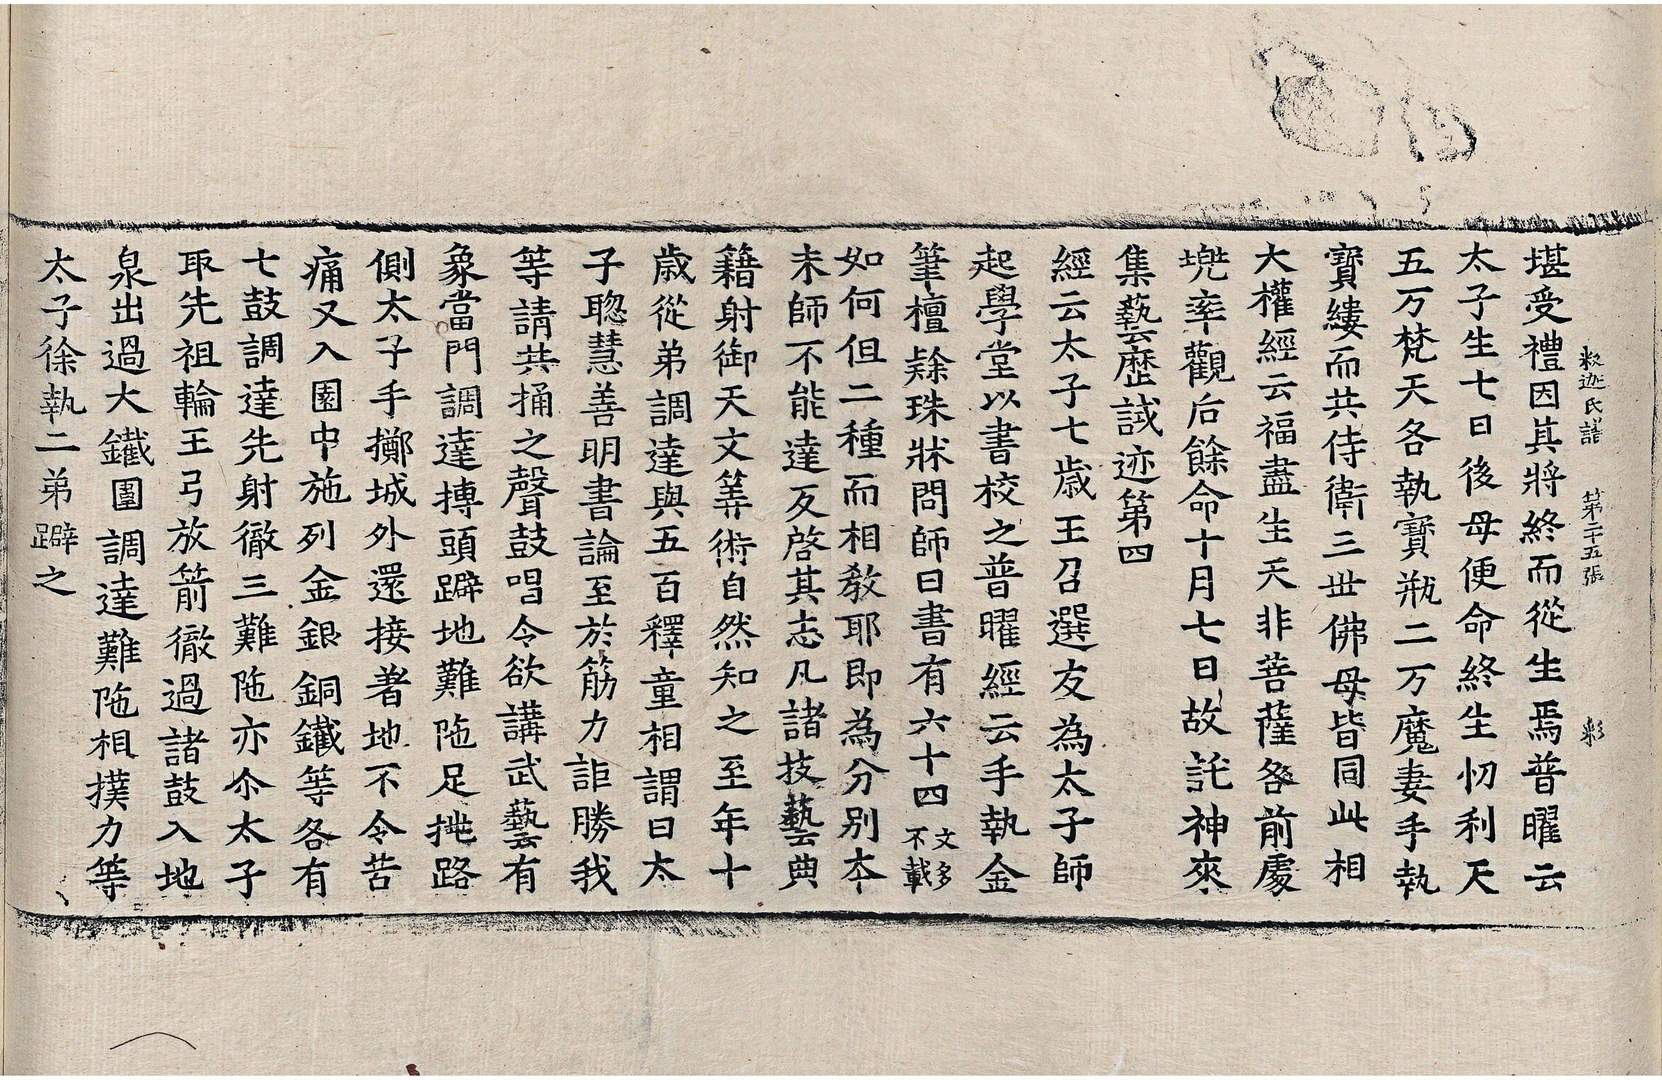 釈迦氏譜 第二十五張 彩
堪受禮因其將終而從生焉普曜云
太子生七日後母便命終生忉利天
五万梵天各執寶瓶二万魔妻手執
寶縷而共侍衛三世佛母皆同此相
大權經云福盡生天非菩薩咎前處
兠率觀后餘命十月七日故託神來
集藝歷試迹第四
經云太子七歲王召選友為太子師
起學堂以書校之普曜經云手執金
筆檀隸珠牀問師曰書有六十四文多不載
如何但二種而相敎耶即為分別本
末師不能達反啓其志凡諸技藝典
籍射御天文筭術自然知之至年十
歲從弟調達與五百釋童相謂曰太
子聦慧善明書論至於筋力詎勝我
等請共捅之聲鼓唱令欲講武藝有
象當門調達搏頭躃地難陁足挑路
側太子手擲城外還接著地不令苦
痛又入園中施列金銀銅鐵等各有
七鼓調達先射徹三難陁亦尒太子
取先祖輪王弓放箭徹過諸鼓入地
泉出過大鐵圍調達難陁相撲力等
太子徐執二弟躃之